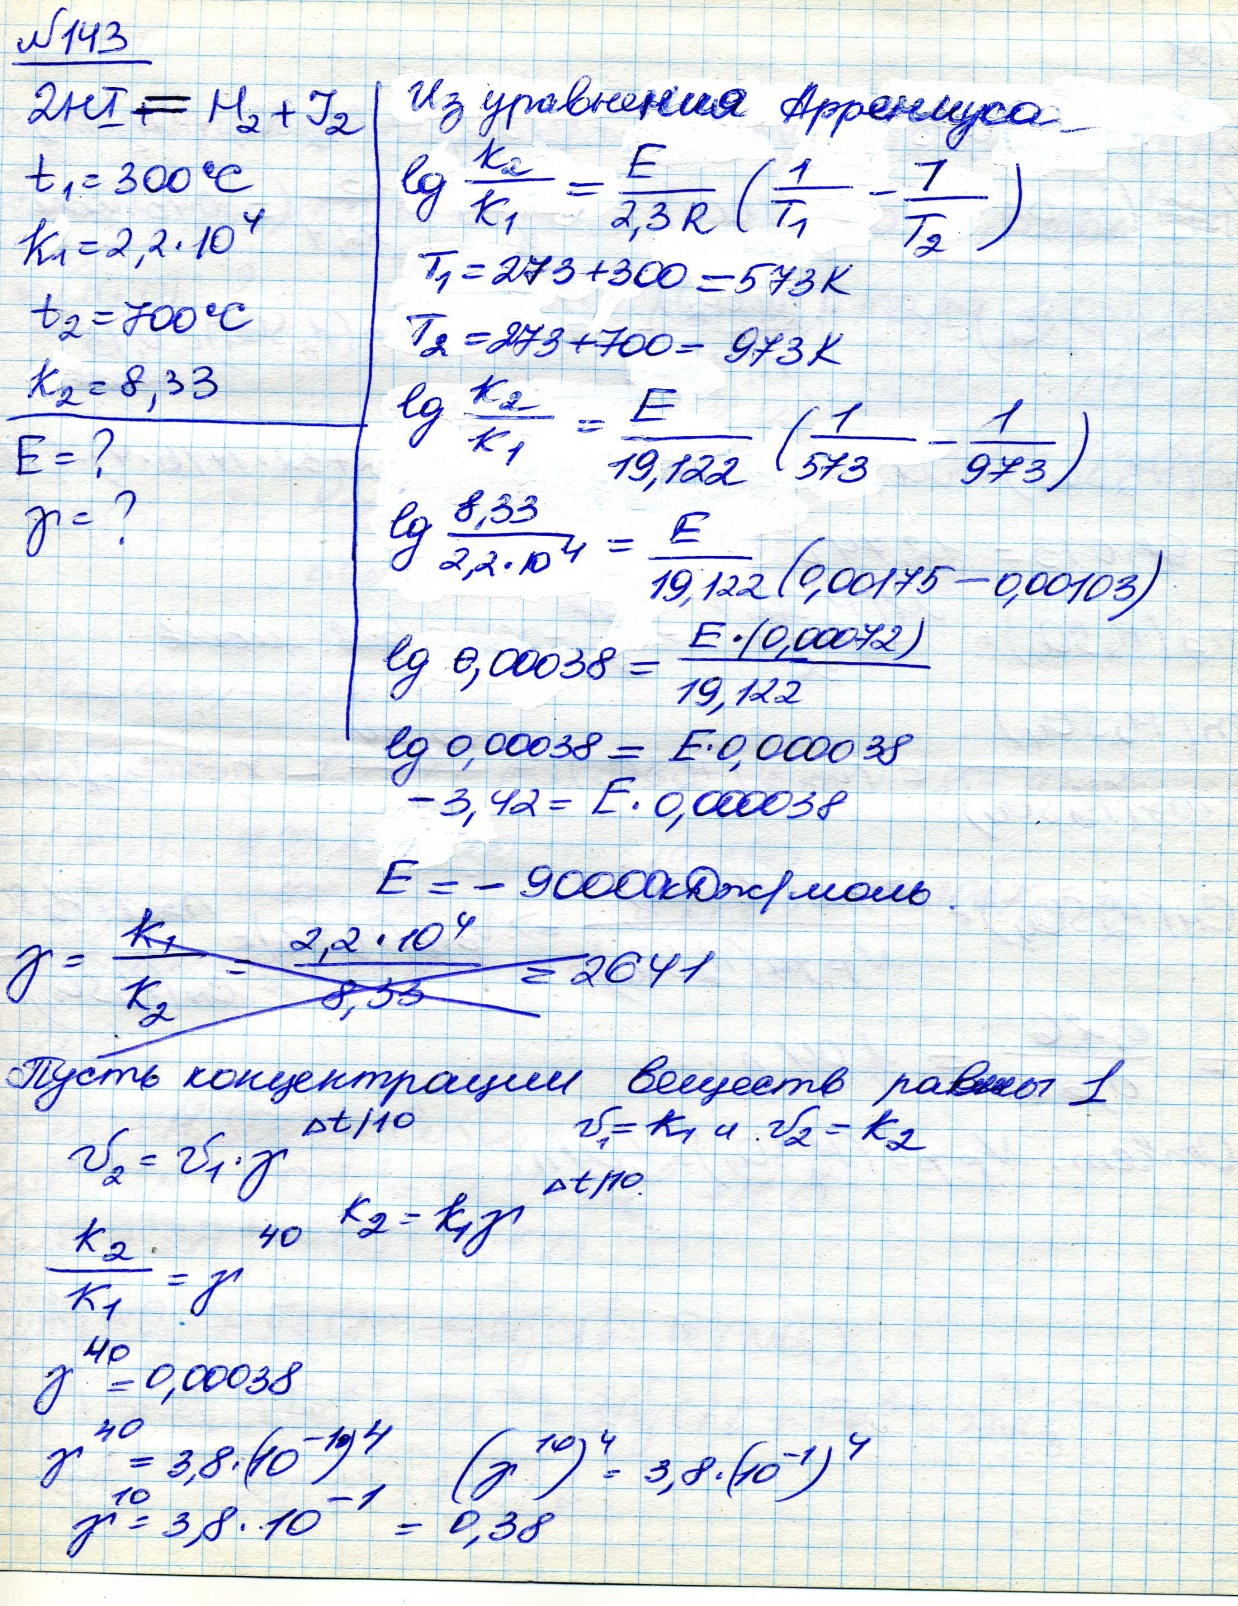 №143
2HI = H₂ + J₂
t₁ = 300°C
K₁ = 2,2·10⁴
t₂ = 700°C
K₂ = 8,33
E = ?
γ = ?
Из уравнения Аррениуса
lg K₂/K₁ = E/2,3R (1/T₁ − 1/T₂)
T₁ = 273+300 = 573K
T₂ = 273+700 = 973K
lg K₂/K₁ = E/19,122 (1/573 − 1/973)
lg 8,33/2,2·10⁴ = E/19,122 (0,00175 − 0,00103)
lg 0,00038 = E·(0,00072)/19,122
lg 0,00038 = E·0,000038
−3,42 = E·0,000038
E = − 90000кДж/моль.
γ = K₁/K₂ = 2,2·10⁴/8,33 = 2641
Пусть концентрации веществ равны 1
υ₂ = υ₁·γ^Δt/10 υ₁ = K₁ и υ₂ = K₂
K₂ = K₁γ^Δt/10
K₂/K₁ = γ⁴⁰
γ⁴⁰ = 0,00038
γ⁴⁰ = 3,8·(10⁻¹)⁴ (γ¹⁰)⁴ = 3,8·(10⁻¹)⁴
γ¹⁰ = 3,8·10⁻¹ = 0,38